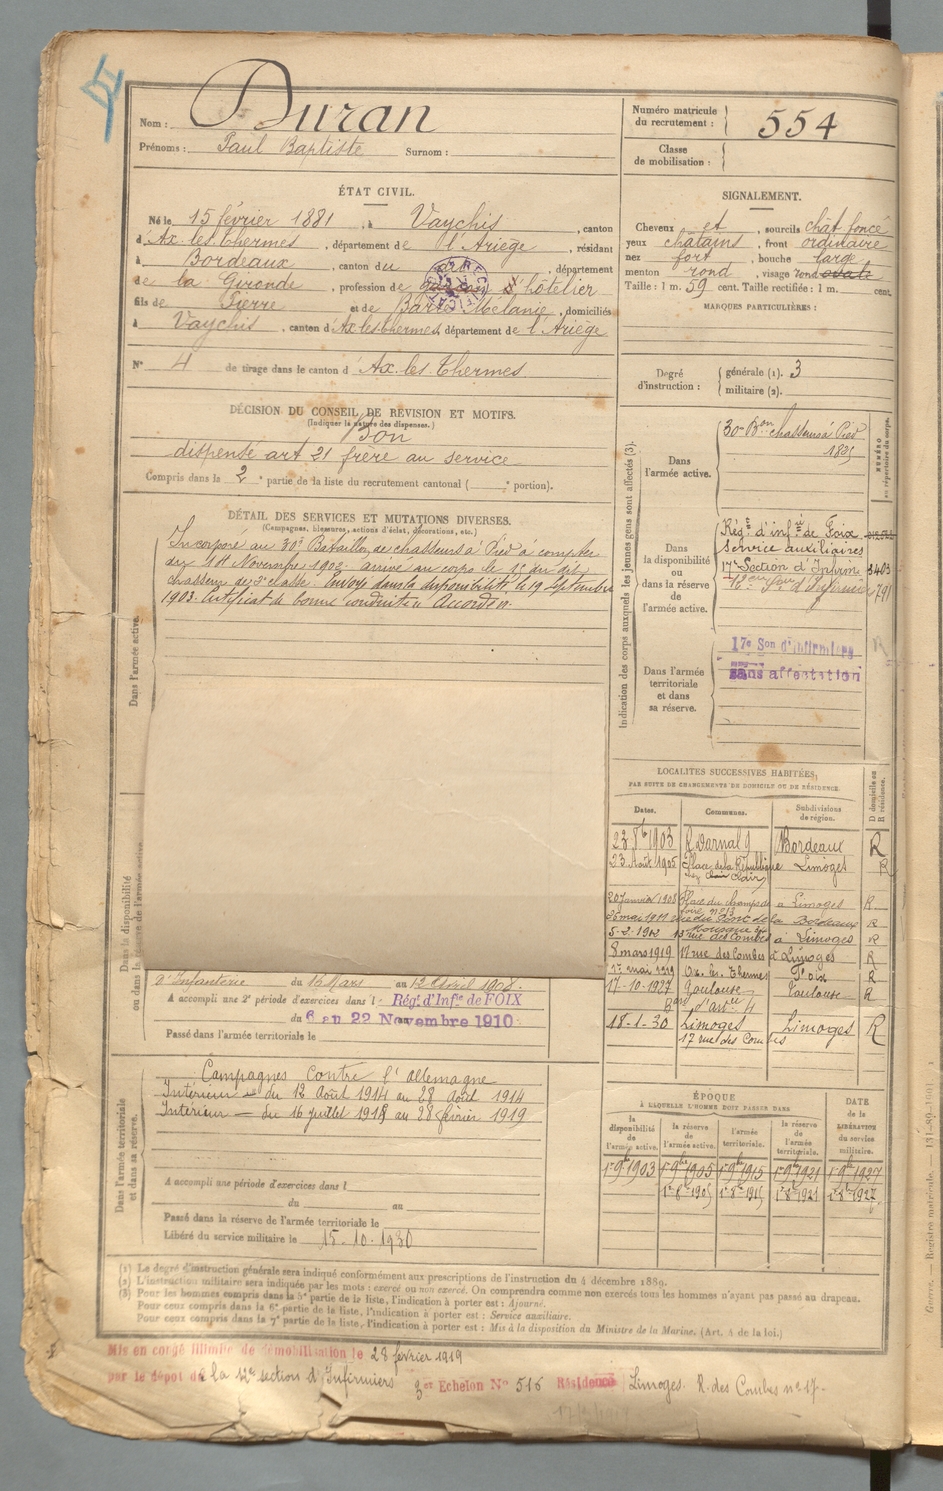 Nom : Duran
Prénoms : Paul Baptiste Surnom :
Numéro matricule
du recrutement : 554
Classe
de mobilisation :
ÉTAT CIVIL.
Né le 15 février 1881, à Vaychis, canton
d'Ax les Thermes, département de l'Ariège, résidant
à Bordeaux, canton du , département
de la Gironde, profession de d'hôtelier
fils de Pierre et de Mélanie, domiciliés
à Vaychis, canton d'Ax les thermes, département de l'Ariège
N° 4 de tirage dans le canton d'Ax les Thermes
SIGNALEMENT.
Cheveux et, sourcils chât foncé
yeux châtains, front ordinaire
nez fort, bouche large
menton rond, visage rond ovale
Taille : 1 m. 59 cent. Taille rectifiée : 1 m. cent.
MARQUES PARTICULIÈRES :
Degré
d'instruction :
générale (1). 3
militaire (2).
DÉCISION DU CONSEIL DE REVISION ET MOTIFS.
(Indiquer la nature des dispenses.)
Bon
dispensé art 21 frère au service
Compris dans la 2e partie de la liste du recrutement cantonal ( e portion).
DÉTAIL DES SERVICES ET MUTATIONS DIVERSES.
(Campagnes, blessures, actions d'éclat, décorations, etc.)
Dans l'armée active.
Incorporé au 30e Bataillon de chasseurs à Pied à compter
du Novembre 1902 arrivé au corps le 15 du dit
chasseur de 2e classe. Envoyé dans la disponibilité le 19 septembre
1903. Certificat de bonne conduite Accordé.
Indication des corps auxquels les jeunes gens sont affectés (3).
NUMÉRO
au répertoire du corps.
Dans
l'armée active.
30e Bon chasseurs à Pied
Dans
la disponibilité
ou dans la réserve
de
l'armée active.
Régt d'infie de Foix
Service auxiliaires
17e Section d'Infirm 3403
Son d'Infirmiers 791
Dans l'armée
territoriale
et dans
sa réserve.
17e Son d'Infirmiers
sans affectation
R
LOCALITÉS SUCCESSIVES HABITÉES,
PAR SUITE DE CHANGEMENTS DE DOMICILE OU DE RÉSIDENCE.
D domicile ou
R résidence.
Dates. Communes. Subdivisions
de région.
23 8bre 1903 R Darnal 9 Bordeaux R
23 Août 1905 Place de la République Limoges R
20 janvier 1908 Place du champ de à Limoges R
26 mai 1911 rue du de la Bordeaux R
5-2-1912 13 rue des Combes à Limoges R
8 mars 1919 17 rue des Combes à Limoges R
1er mai 1919 Ax les Thermes Foix R
17-10-1927 Toulouse Toulouse R
d'Artie
18-1-30 Limoges Limoges R
17 rue des Combes
Dans la disponibilité
ou dans la réserve de l'armée active.
d'Infanterie du 16 Mars au 12 Avril 1908.
A accompli une 2e période d'exercices dans l Régt d'Infie de FOIX
du 6 au 22 Novembre 1910
Passé dans l'armée territoriale le
Dans l'armée territoriale
et dans sa réserve.
Campagnes contre l'Allemagne
Intérieur du 12 Août 1914 au 28 Août 1914
Intérieur du 16 juillet 1918 au 28 février 1919
A accompli une période d'exercices dans l
du au
Passé dans la réserve de l'armée territoriale le
Libéré du service militaire le 15-10-1930
ÉPOQUE
À LAQUELLE L'HOMME DOIT PASSER DANS
DATE
de la
LIBÉRATION
du service
militaire.
la
disponibilité
de
l'armée active.
la réserve
de
l'armée active.
l'armée
territoriale.
la réserve
de
l'armée
territoriale.
1er 9bre 1903 1er 9bre 1905 1er 9bre 1915 1er 9bre 1921 1er 9bre 1927
1er 8bre 1905 1er 8bre 1915 1er 8bre 1921 1er 8bre 1927
(1) Le degré d'instruction générale sera indiqué conformément aux prescriptions de l'instruction du 4 décembre 1889.
(2) L'instruction militaire sera indiquée par les mots : exercé ou non exercé. On comprendra comme non exercés tous les hommes n'ayant pas passé au drapeau.
(3) Pour les hommes compris dans la 5e partie de la liste, l'indication à porter est : Ajourné.
Pour ceux compris dans la 6e partie de la liste, l'indication à porter est : Service auxiliaire.
Pour ceux compris dans la 7e partie de la liste, l'indication à porter est : Mis à la disposition du Ministre de la Marine. (Art. 4 de la loi.)
Mis en congé illimité de démobilisation le 28 février 1919
par le dépôt de la 12e section d'Infirmiers 3e Echelon N° 516 Résidence Limoges R. des Combes n° 17